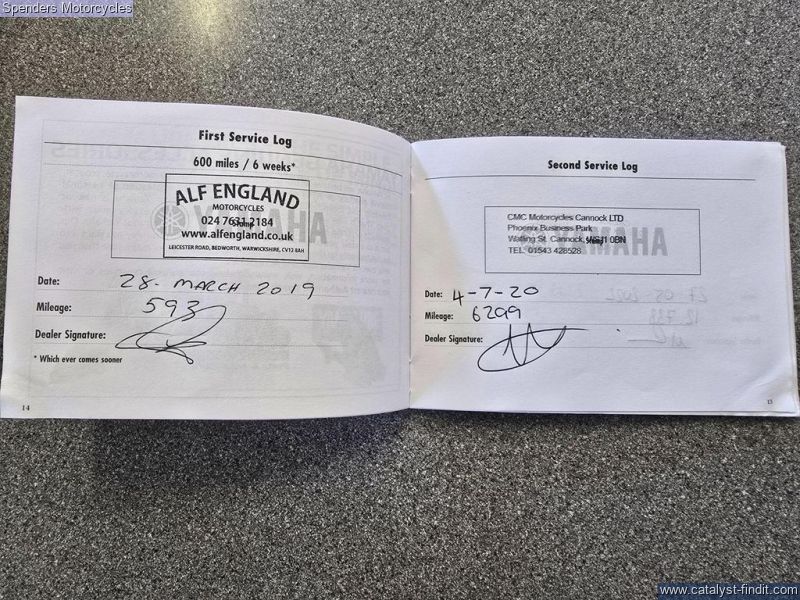 Spenders Motorcycles
First Service Log
600 miles / 6 weeks*
ALF ENGLAND
MOTORCYCLES
024 7631 2184
www.alfengland.co.uk
LEICESTER ROAD, BEDWORTH, WARWICKSHIRE, CV12 8AH
Date: 28. MARCH 2019
Mileage: 593
Dealer Signature:
* Which ever comes sooner
14
Second Service Log
CMC Motorcycles Cannock LTD
Phoenix Business Park
Watling St. Cannock, 0BN
TEL: 01543 428528
Date: 4-7-20
Mileage: 6299
Dealer Signature:
www.catalyst-findit.com